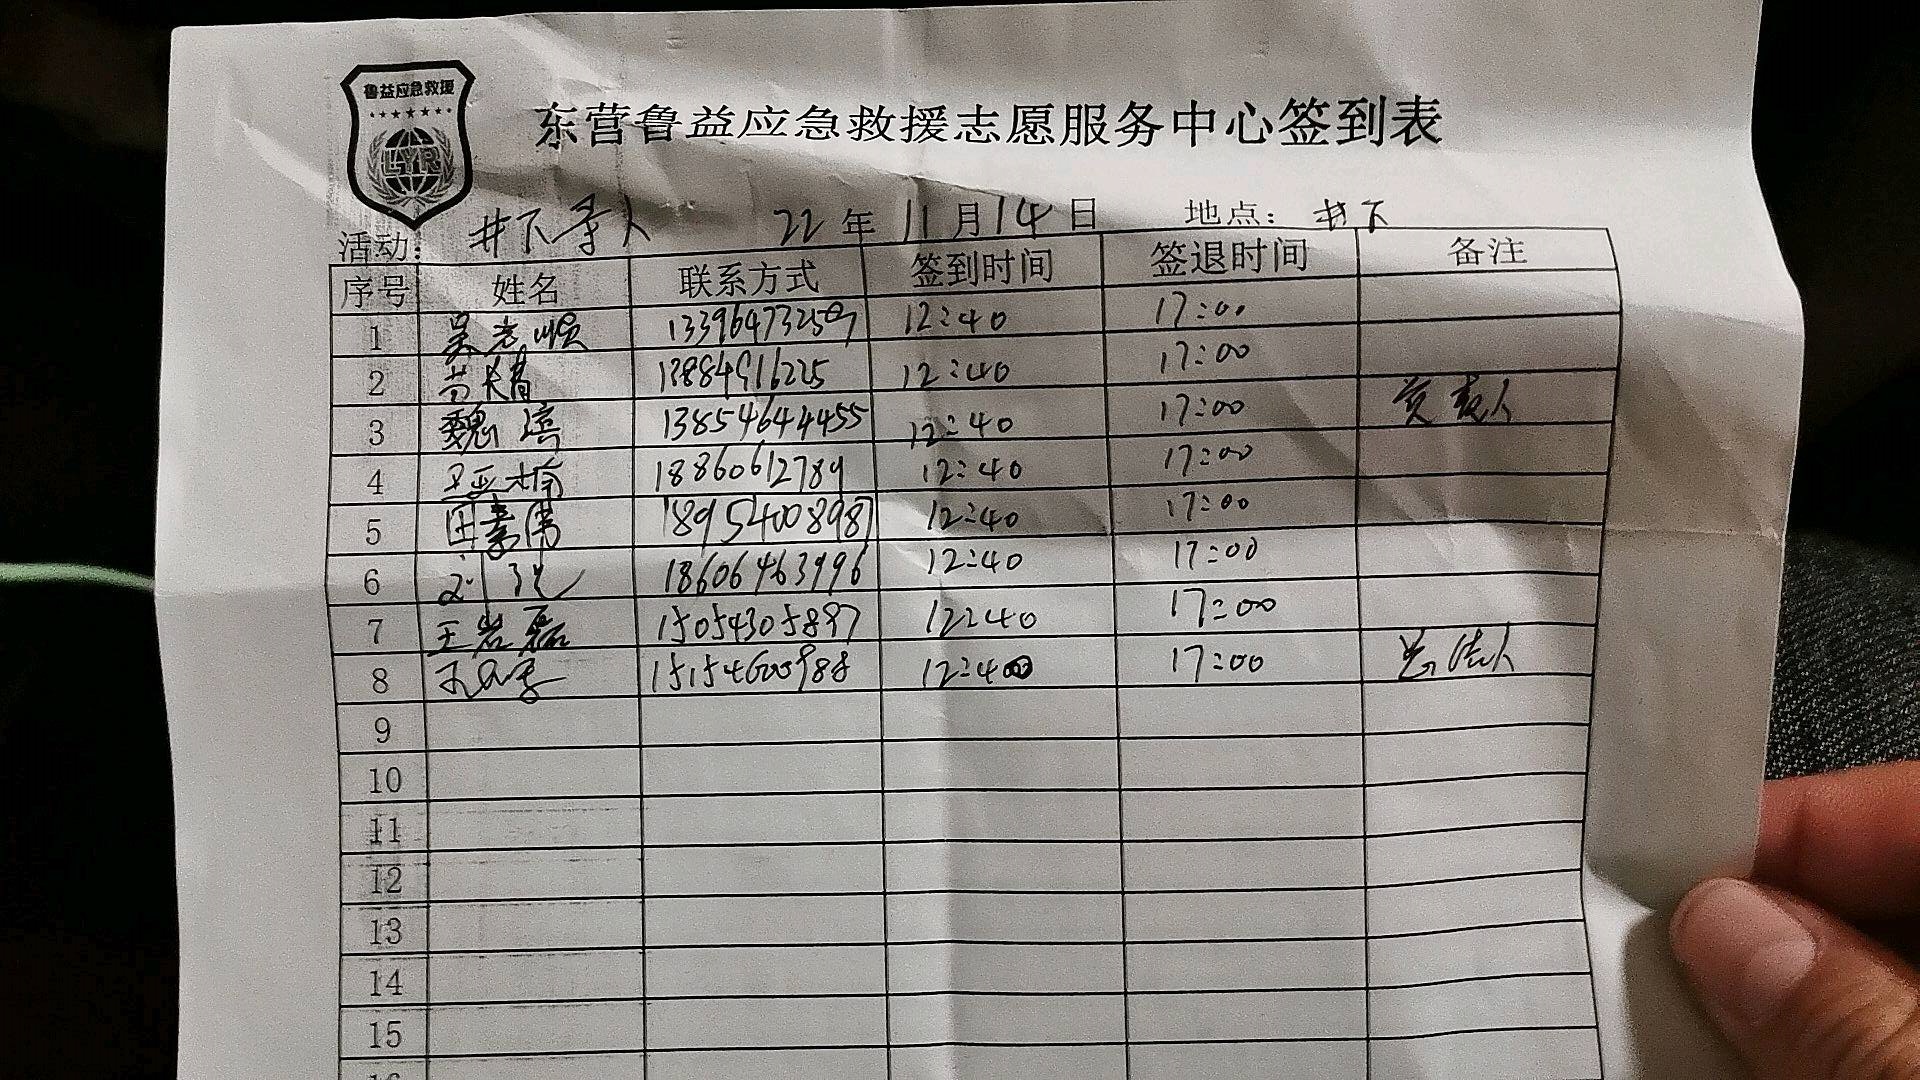 鲁益应急救援
LYR
东营鲁益应急救援志愿服务中心签到表
活动: 井下寻人 22年11月14日 地点: 井下
序号 姓名 联系方式 签到时间 签退时间 备注
1 吴志顺 12:40 17:00
2 13884916225 12:40 17:00
3 魏滨 13854644455 12:40 17:00 负责人
4 18860612789 12:40 17:00
5 田嘉伟 18954008987 12:40 17:00
6 18606463996 12:40 17:00
7 王岩磊 15054305897 12:40 17:00
8 15154600988 12:40 17:00
9
10
11
12
13
14
15
16